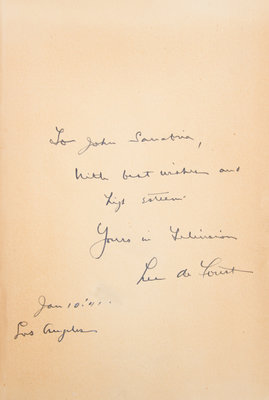 To John Sanabria,
With best wishes and
high esteem
Yours in Television
Lee de Forest
Jan 10.'41.
Los Angeles